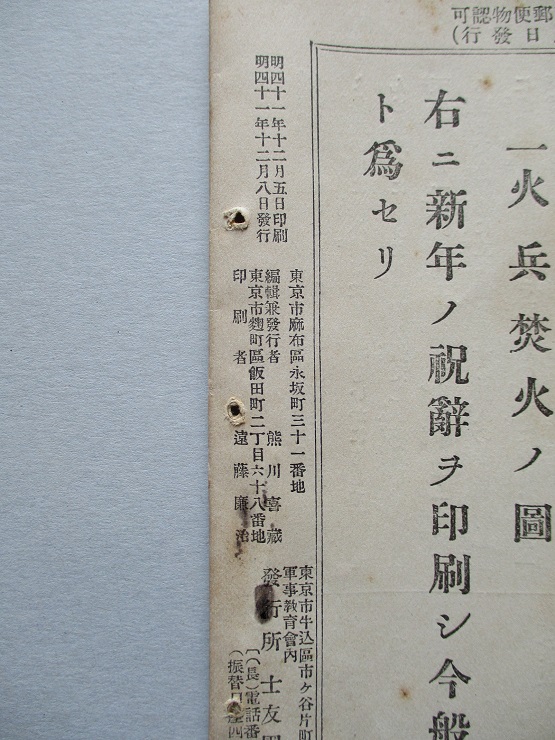 郵便物認可
日發行)
一火兵焚火ノ圖
右ニ新年ノ祝辭ヲ印刷シ今般
ト爲セリ
明四十一年十二月五日印刷
明四十一年十二月八日發行
東京市麻布區永坂町三十一番地
編輯兼發行者 熊川喜藏
東京市麴町區飯田町二丁目六十八番地
印刷者 遠藤廉治
東京市牛込區市ケ谷片町
軍事教育會內
發行所 士友
(長)電話番
(振替口座四